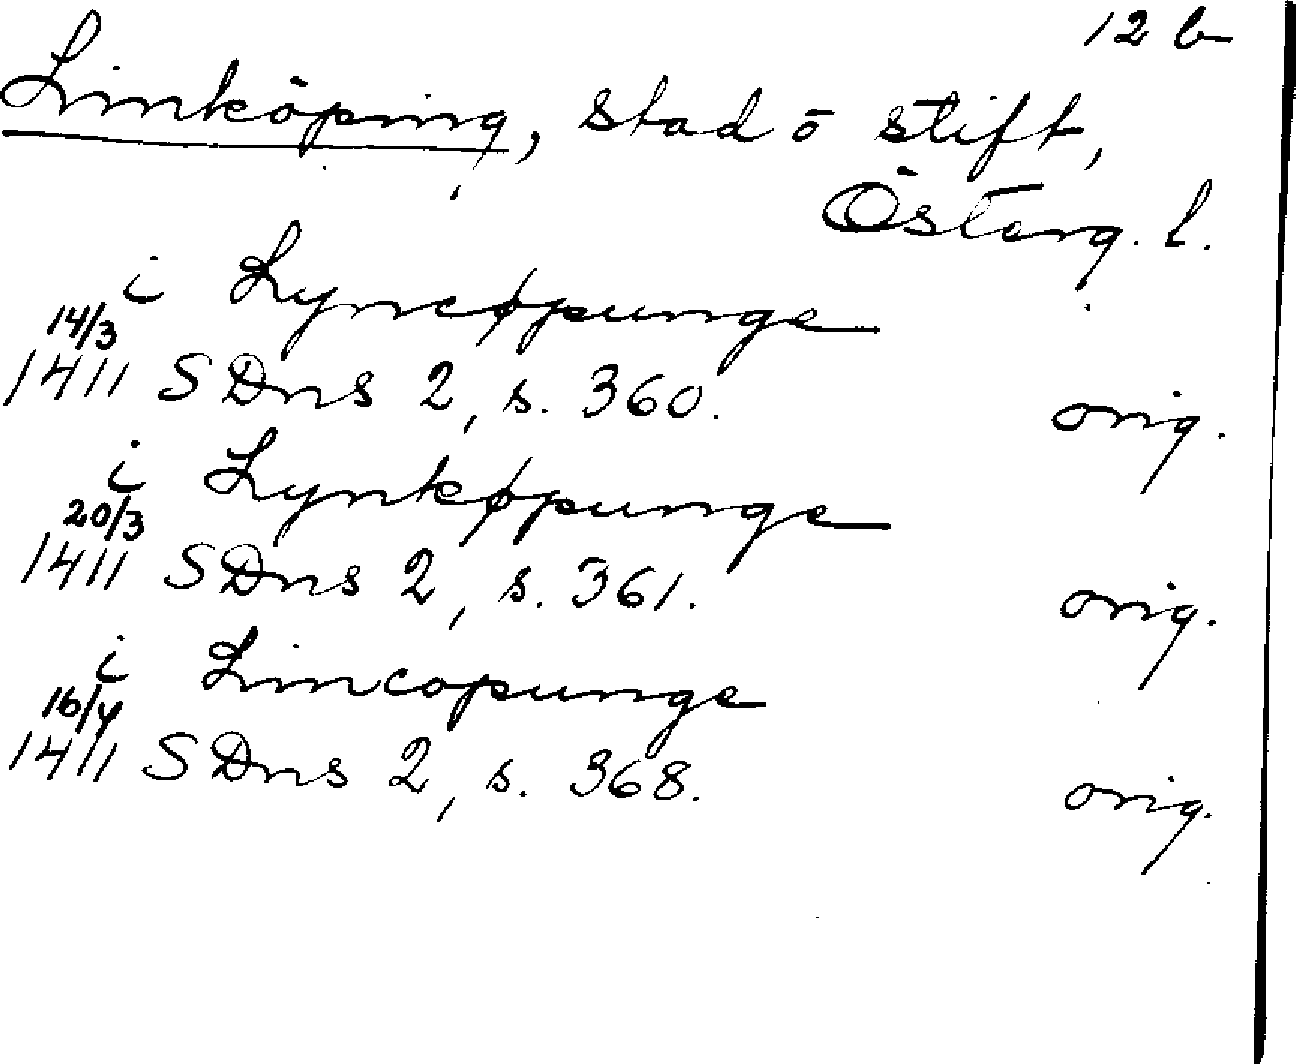 12 b
Linköping, stad o stift,
Österg. l.
i Lyncøpunge
14/3
1411 SDns 2, s. 360. orig.
i Lynkøpunge
20/3
1411 SDns 2, s. 361. orig.
i Lincopunge
16/4
1411 SDns 2, s. 368. orig.